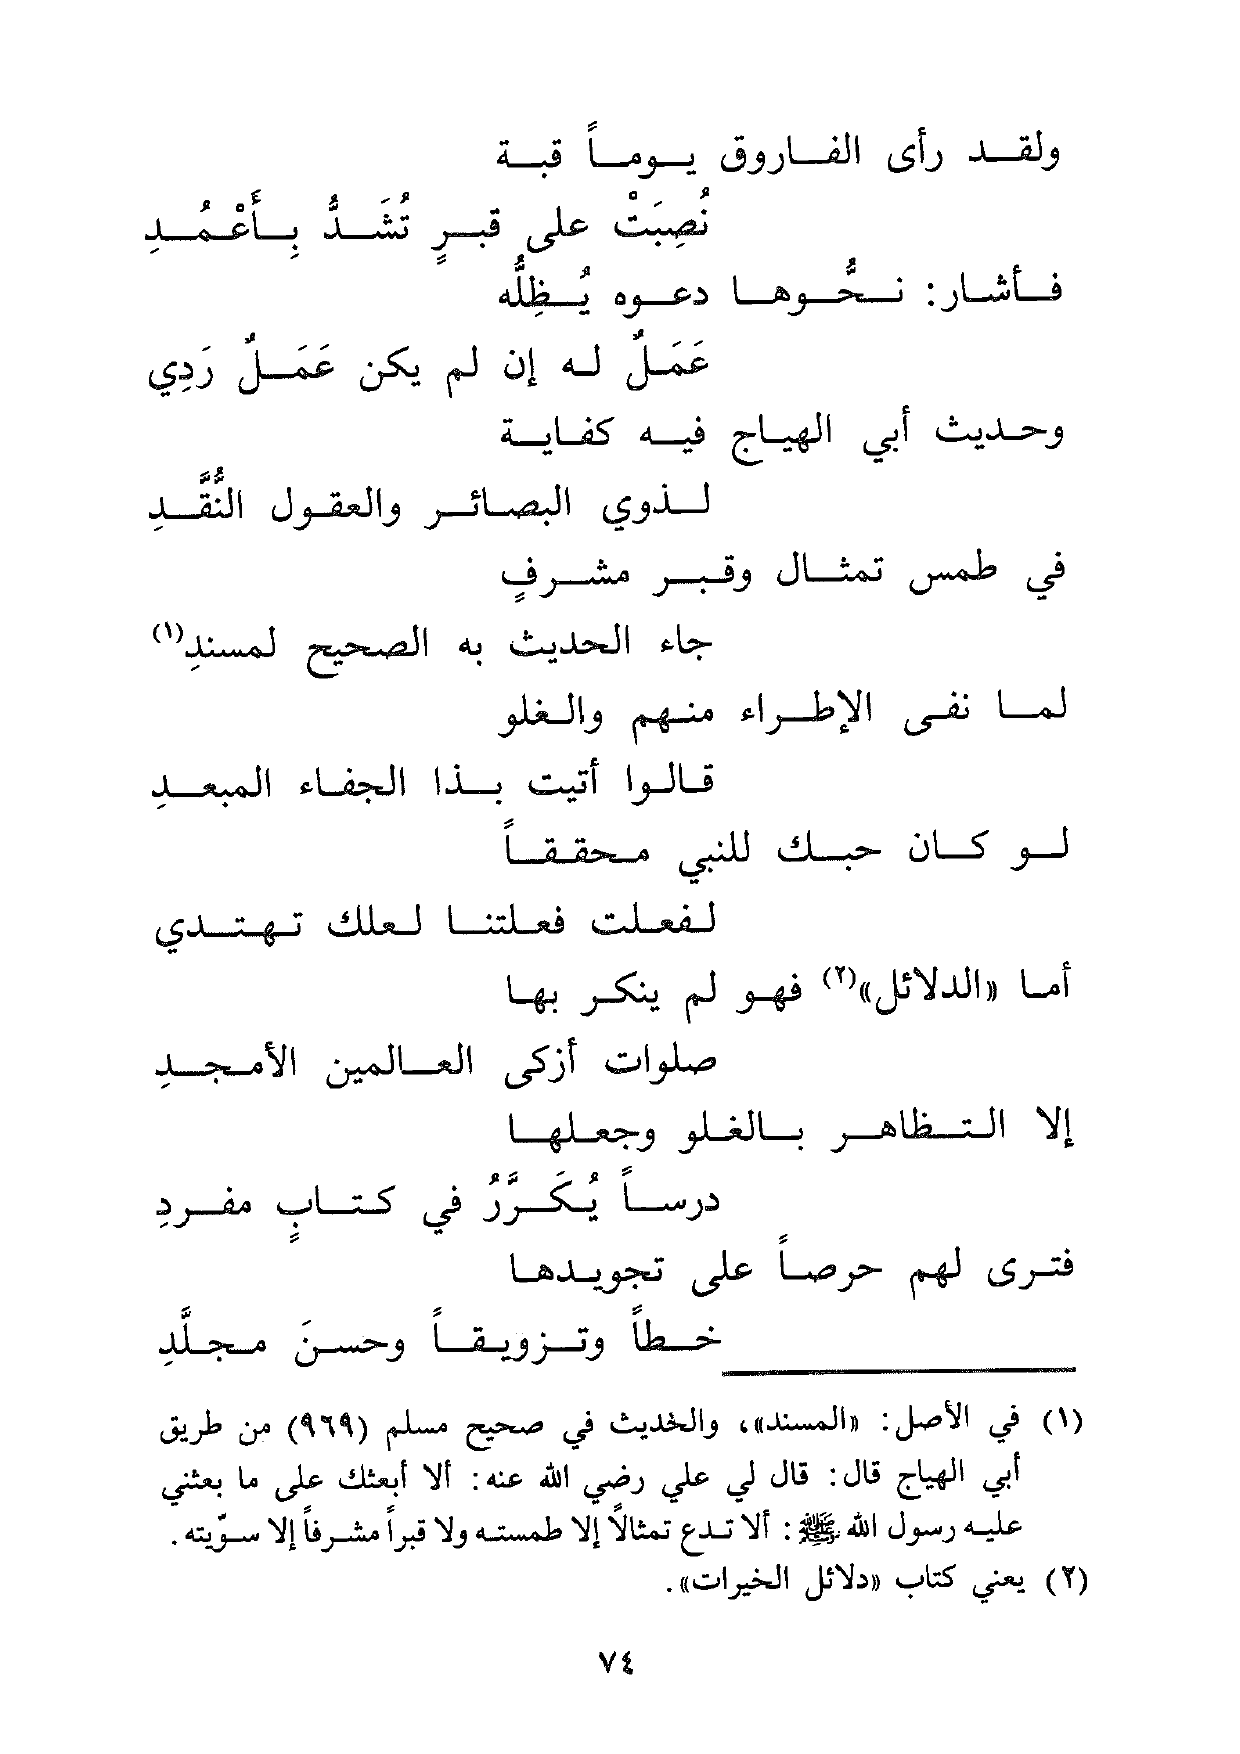 ولقد رأى الفاروق يوماً قبة
نُصِبَتْ على قبرٍ تُشَدُّ بِأَعْمُدِ
فأشار: نحُّوها دعوه يُظِلُّه
عَمَلٌ له إن لم يكن عَمَلٌ رَدِي
وحديث أبي الهياج فيه كفاية
لذوي البصائر والعقول النُّقَّدِ
في طمس تمثال وقبر مشرفٍ
جاء الحديث به الصحيح لمسندِ(١)
لما نفى الإطراء منهم والغلو
قالوا أتيت بذا الجفاء المبعدِ
لو كان حبك للنبي محققاً
لفعلت فعلتنا لعلك تهتدي
أما «الدلائل»(٢) فهو لم ينكر بها
صلوات أزكى العالمين الأمجدِ
إلا التظاهر بالغلو وجعلها
درساً يُكَرَّرُ في كتابٍ مفردِ
فترى لهم حرصاً على تجويدها
خطاً وتزويقاً وحسنَ مجلَّدِ
(١) في الأصل: «المسند»، والحديث في صحيح مسلم (٩٦٩) من طريق
أبي الهياج قال: قال لي علي رضي الله عنه: ألا أبعثك على ما بعثني
عليه رسول الله ﷺ: ألا تدع تمثالاً إلا طمسته ولا قبراً مشرفاً إلا سوّيته.
(٢) يعني كتاب «دلائل الخيرات».
٧٤